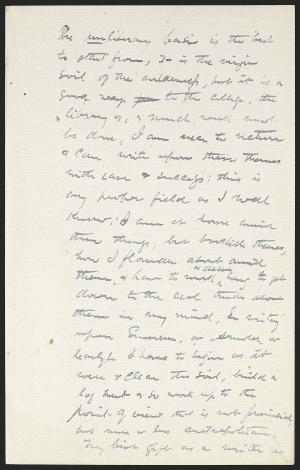 The unliterary basis is the best
to start from, It is the virgin
soil of the wilderness, but it is a
good way to the college, the
library &, & much work must
be done, I am near to nature
& can write upon these themes
with ease & success; this is
my proper field as I well
know; I am at home amid
these things, but bookish themes,
how I flounder about amid
them, & have to work or delve long to get
down to the real truth about
them in my mind, In writing
upon Emerson, or Arnold, or
Carlyle I have to begin as it
were & clear the soil, build a
log hut & so work up to the
point of view that is not provincial
but more or less metropolitan.
My best gift as a writer is